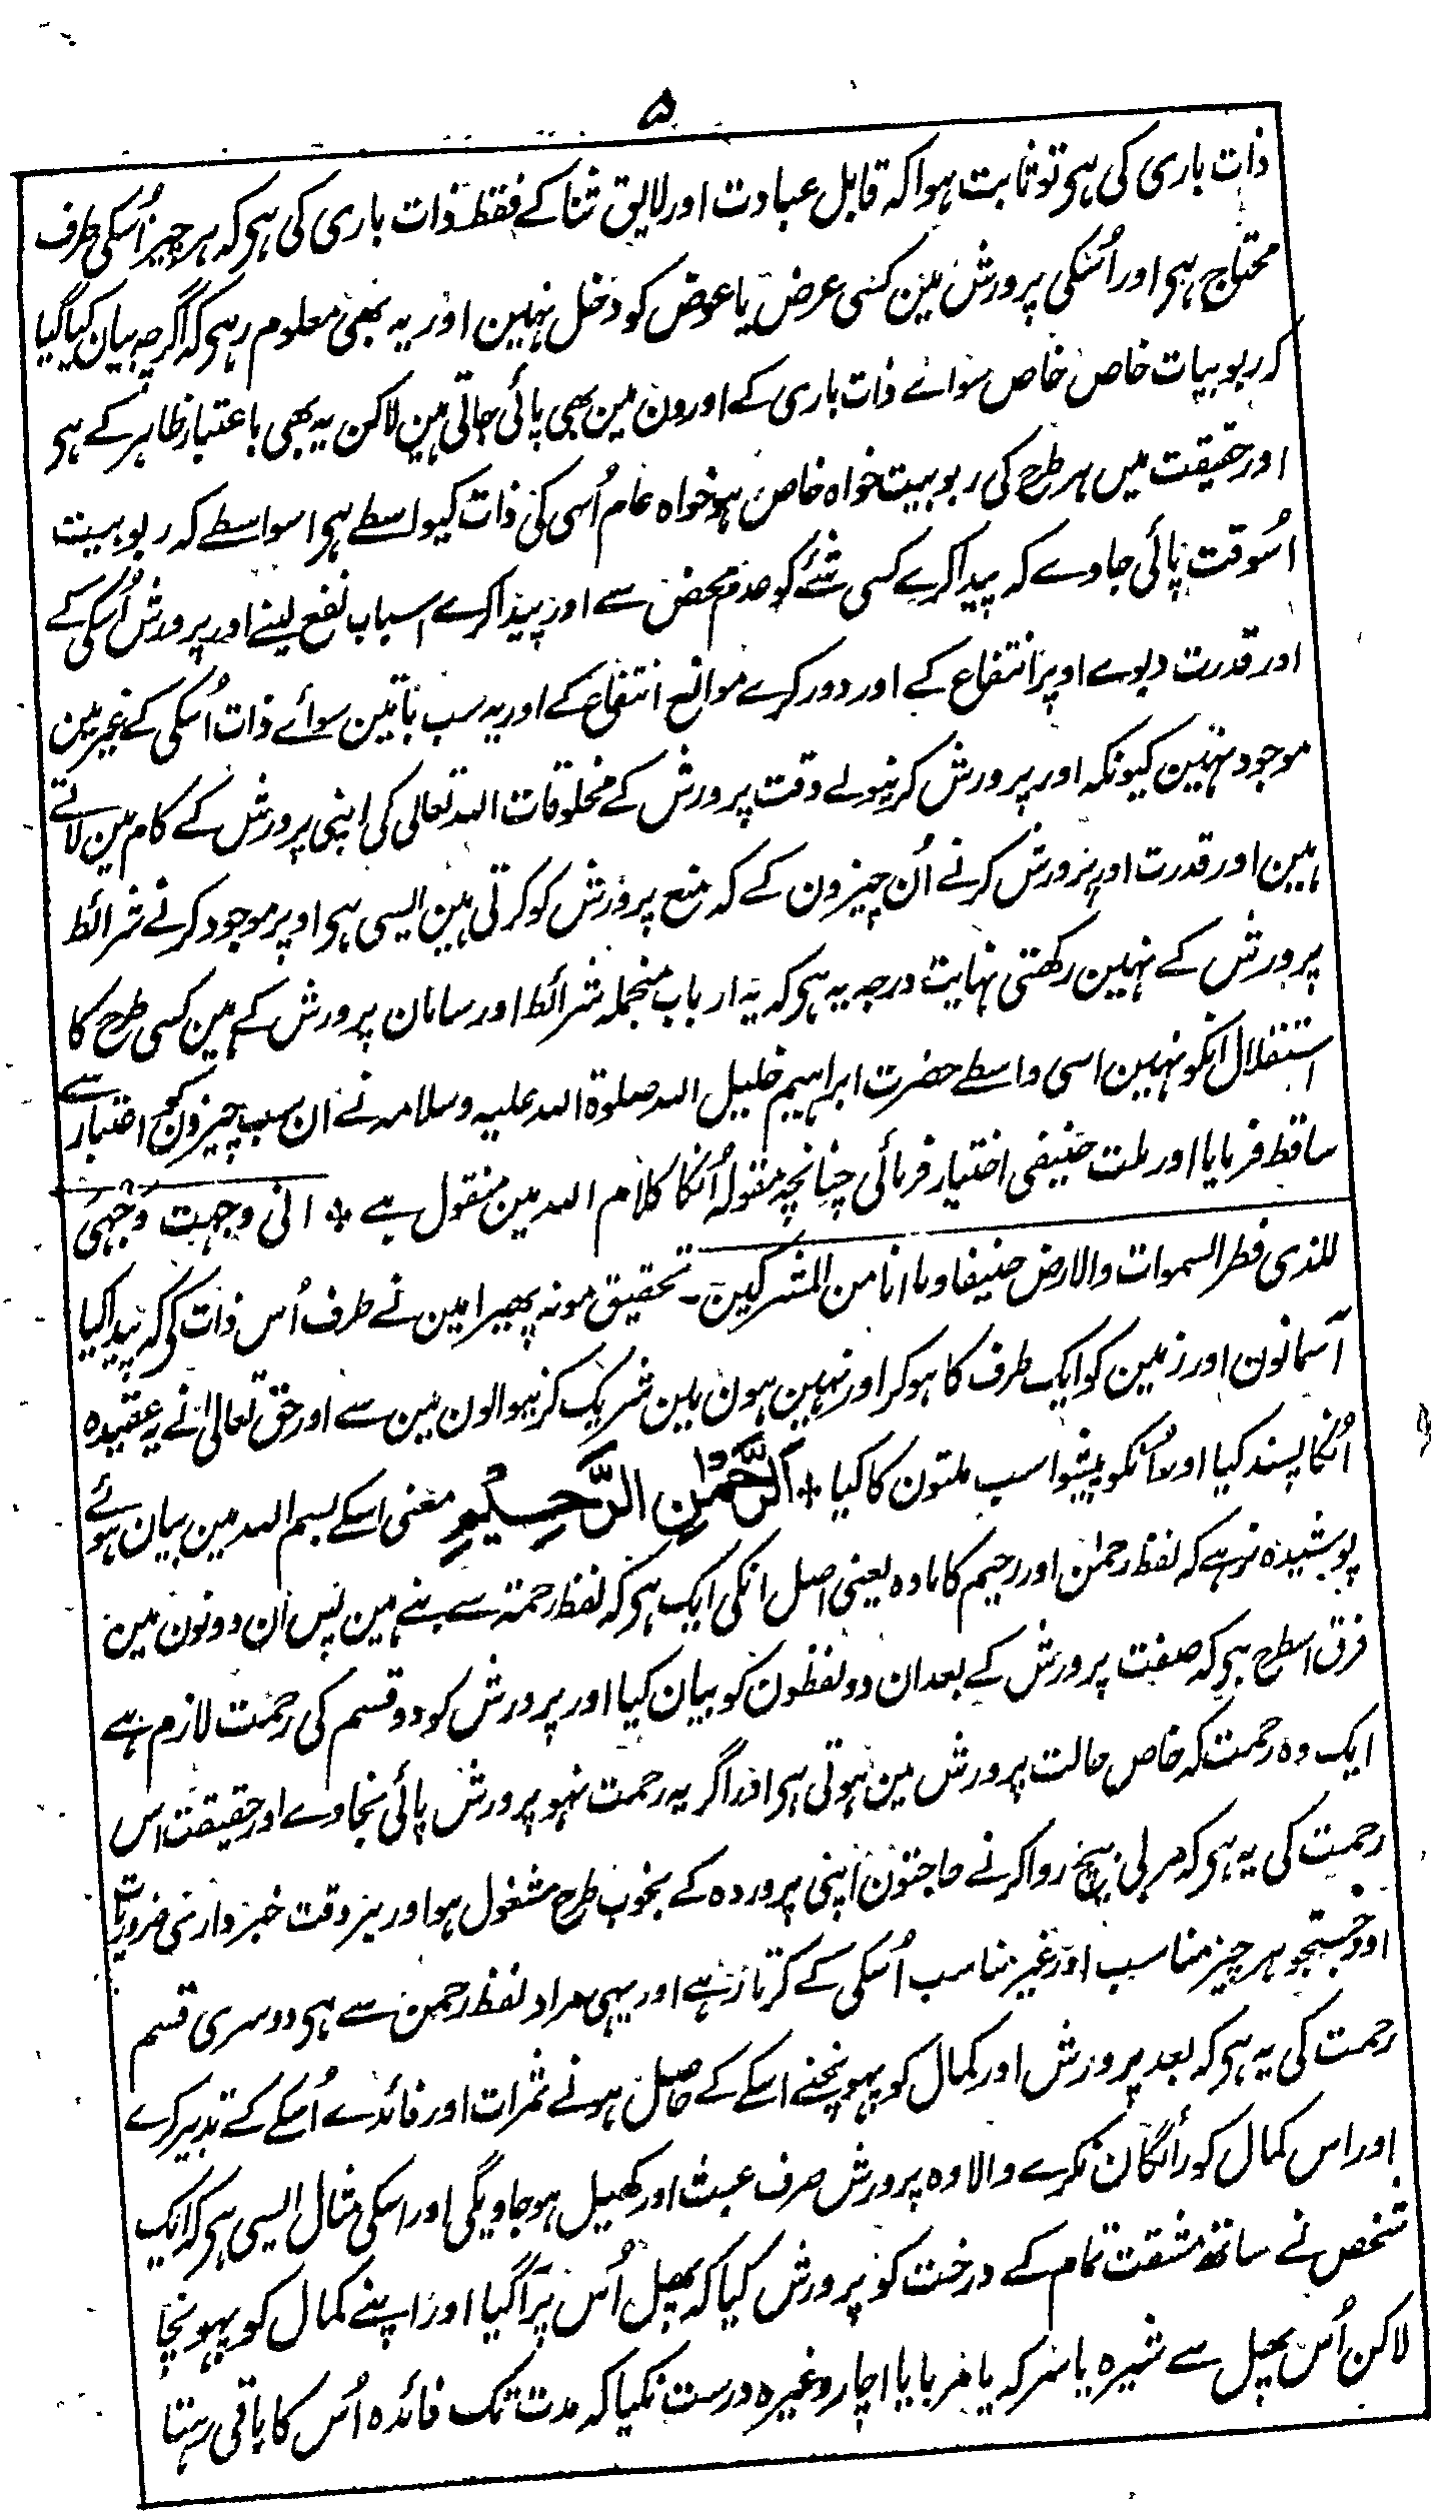 ۵
ذات باری کی ہی تو ثابت ہوا کہ قابل عبادت اور لایق ثنا کے فقط ذات باری کی ہی کہ ہر چیز اُسکی طرف
محتاج ہی اور اُسکی پرورش مین کسی عرض یا عوض کو دخل نہین اور یہ بھی معلوم رہی کہ اگرچہ بیان کیا گیا
کہ ربوبیات خاص خاص سواے ذات باری کے اورون مین بھی پائی جاتی ہین لاکن یہ بھی باعتبار ظاہر کے ہی
اور حقیقت میں ہر طرح کی ربوبیت خواہ خاص ہو خواہ عام اُسی کی ذات کیواسطے ہی اسواسطے کہ ربوبیت
اُسوقت پائی جاوے کہ پیدا کرے کسی شئے کو عدم محض سے اور پیدا کرے اسباب نفع لینے اور پرورش اُسکی کے
اور قدرت دیوے اوپر انتفاع کے اور دور کرے موانع انتفاع کے اور یہ سب باتین سوائے ذات اُسکی کے غیر مین
موجود نہین کیونکہ اور پرورش کرنیوالے وقت پرورش کے مخلوقات اللہ تعالی کی اپنی پرورش کے کام مین لاتے
ہین اور قدرت اوپر پرورش کرنے اُن چیزون کے کہ منع پرورش کو کرتی ہین ایسی ہی اوپر موجود کرنے شرائط
پرورش کے نہین رکھتی نہایت درجہ یہ ہی کہ یہ ارباب منجملہ شرائط اور سامان پرورش کے ہین کسی طرح کا
استقلال انکو نہین اسی واسطے حضرت ابراہیم خلیل اللہ صلوۃ اللہ علیہ وسلامہ نے ان سب چیزون کو اعتبار سے
ساقط فرمایا اور ملت حنیفی اختیار فرمائی چنانچہ مقولہ اُنکا کلام اللہ مین منقول ہے * انی وجہت وجہی
للذی فطر السموات والارض حنیفا وما انا من المشرکین۔ تحقیق مونہ پھیرا مین نے طرف اُس ذات کی کہ پیدا کیا
آسمانون اور زمین کو ایک طرف کا ہو کر اور نہین ہون مین شریک کرنیوالون مین سے اور حق تعالیٰ نے یہ عقیدہ
اُنکا پسند کیا اور اُنکو پیشوا سب ملتون کا کیا * الرَّحْمٰنِ الرَّحِيْمِ معنی اسکے بسم اللہ مین بیان ہوئے
پوشیدہ نرہے کہ لفظ رحمٰن اور رحیم کا مادہ یعنی اصل انکی ایک ہی کہ لفظ رحمۃ سے بنے ہین پس ان دونون مین
فرق اسطرح ہی کہ صفت پرورش کے بعد ان دو لفظون کو بیان کیا اور پرورش کو دو قسم کی رحمت لازم ہے
ایک وہ رحمت کہ خاص حالت پرورش مین ہوتی ہی اور اگر یہ رحمت نہو پرورش پائی نجاوے اور حقیقت اس
رحمت کی یہ ہی کہ مربی بیچ روا کرنے حاجتون اپنی پروردہ کے بخوبی طرح مشغول ہو اور ہر وقت خبرداری ضروریات
اور جستجو ہر چیز مناسب اور غیر مناسب اُسکی کے کرتا رہے اور یہی مراد لفظ رحمن سے ہی دوسری قسم
رحمت کی یہ ہی کہ بعد پرورش اور کمال کو پہونچنے اسکے کے حاصل ہونے ثمرات اور فائدے اُسکے کے تدبیر کرے
اور اس کمال کو رائگان نکرے والا وہ پرورش صرف عبث اور کھیل ہو جاویگی اور اسکی مثال ایسی ہی کہ ایک
شخص نے ساتھ مشقت تمام کے درخت کو پرورش کیا کہ پھل اُس پر آ گیا اور اپنے کمال کو پہونچا
لاکن اُس پھل سے شیرہ یا سرکہ یا مربا یا اچار وغیرہ درست نکیا کہ مدت تک فائدہ اُس کا باقی رہتا